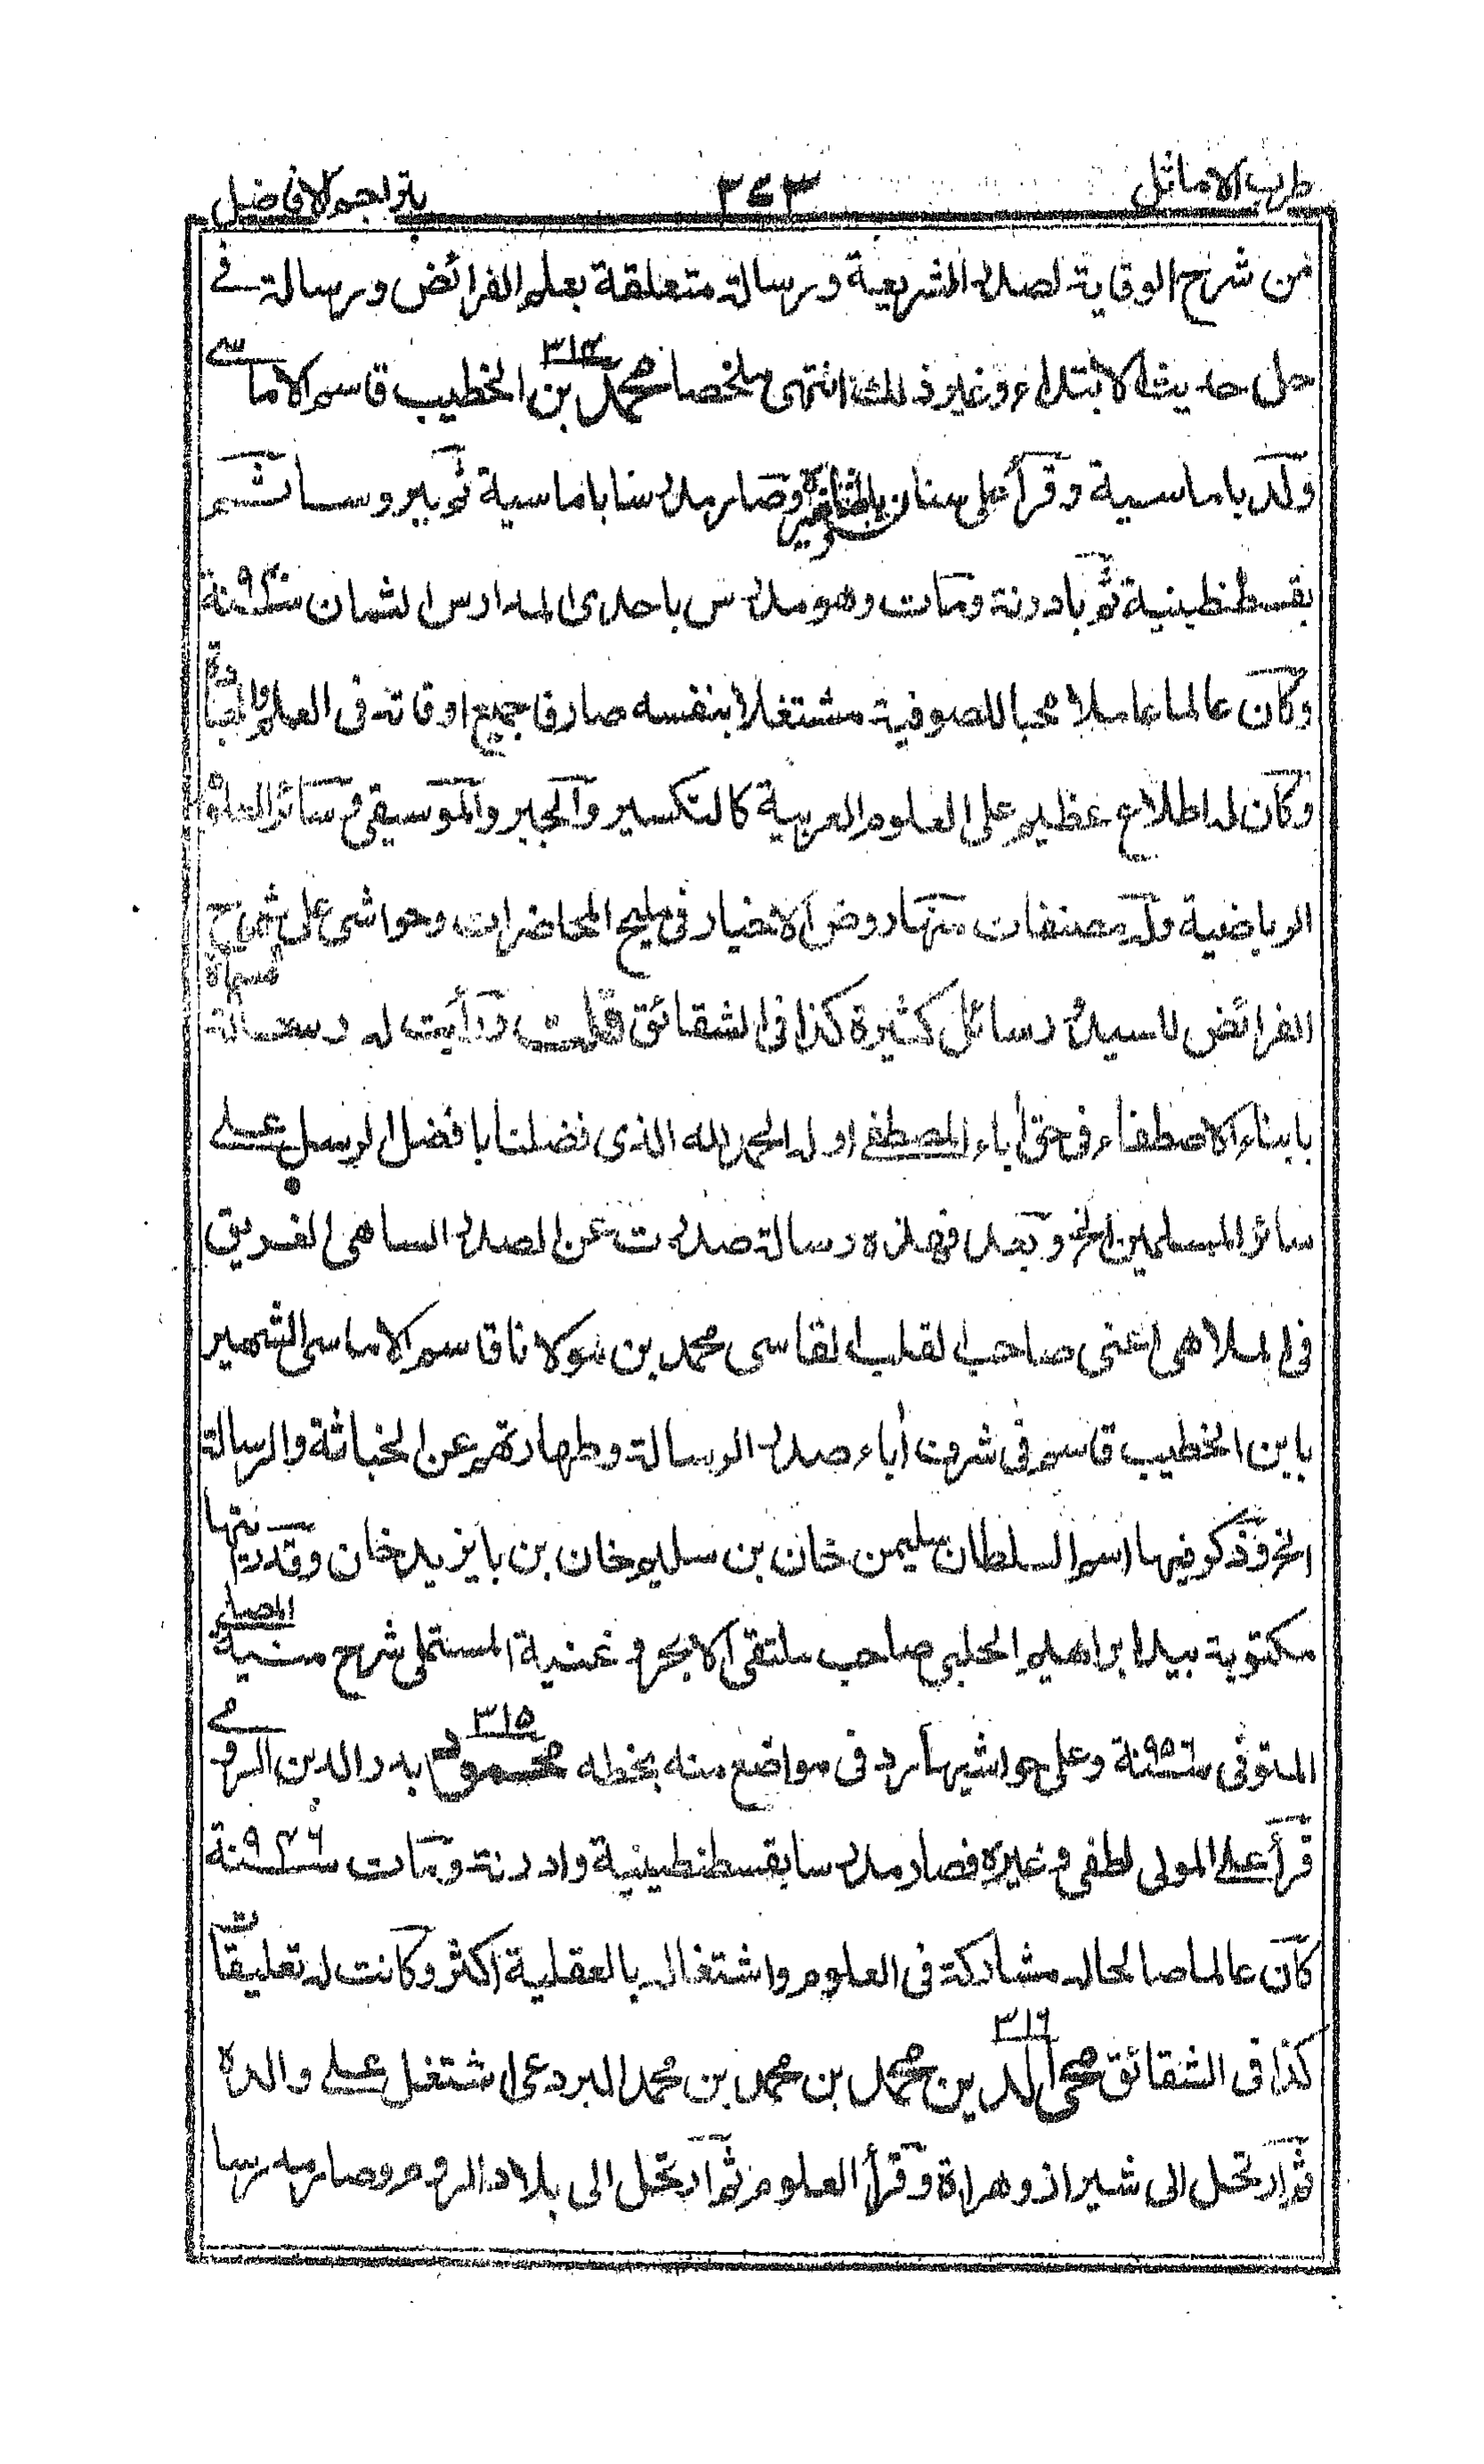 طرب الاماثل ٢٤٣ بتراجم الافاضل
من شرح الوقاية لصدر الشريعية ورسالة متعلقة بعلم الفرائض ورسالة في
حل حديث الابتداء وغير ذلك انتهى ملخصا ٣١٤ محمد بن الخطيب قاسم الاماسي
ولد باماسية وقرأ على سنان باشا وصار مدرسا باماسية ثم ببروسا ثم
بقسطنطينية ثم بادرنة ومات وهو مدرس باحدى المدارس الثمان سنة ٩٤٠
وكان عالما عاملا محبا للصوفية مشتغلا بنفسه صارفا جميع اوقاته في العلم والعبادة
وكان له اطلاع عظيم على العلوم العربية كالتكسير والجبر والموسيقى وسائر العلوم
الرياضية وله مصنفات منها روض الاخيار في المحاضرات وحواشي على شرح
الفرائض للسيد ورسائل كثيرة كذا في الشقائق قلت رأيت له رسالة مسماة
بابناء الاصطفاء في حق أباء المصطفى اوله الحمد لله الذى فضلنا بافضل الرسل على
سائر المسلمين الخ وبعد فهذه رسالة صدرت عن الصدر الساهى الغريق
في الملاهى اعنى صاحب القلب القاسى محمد بن مولانا قاسم الاماسى الشهير
بابن الخطيب قاسم في شرف أباء صدر الرسالة وطهارتهم عن الخباثة والرسالة
الخ وذكر فيها اسم السلطان سليمن خان بن سليم خان بن بايزيد خان وقد رايتها
مكتوبة بيد ابراهيم الحلبي صاحب ملتقى الابحر وغنية المستملى شرح منية المصلى
المتوفى سنة ٩٥٦ وعلى حواشيها رد في مواضع منه بخطه ٣١٥ محمود بدر الدين الرومي
قرأ على المولى لطفى وغيره فصار مدرسا بقسطنطينية وادرنة ومات سنة ٩٣٦
كان عالما صالحا له مشاركة في العلوم واشتغاله بالعقلية اكثر وكانت له تعليقات
كذا في الشقائق ٣١٦ محي الدين محمد بن محمد بن محمد البردعى اشتغل على والده
ثم ارتحل الى شيراز وهراة وقرأ العلوم ثم ارتحل الى بلاد الروم وصار مدرسا